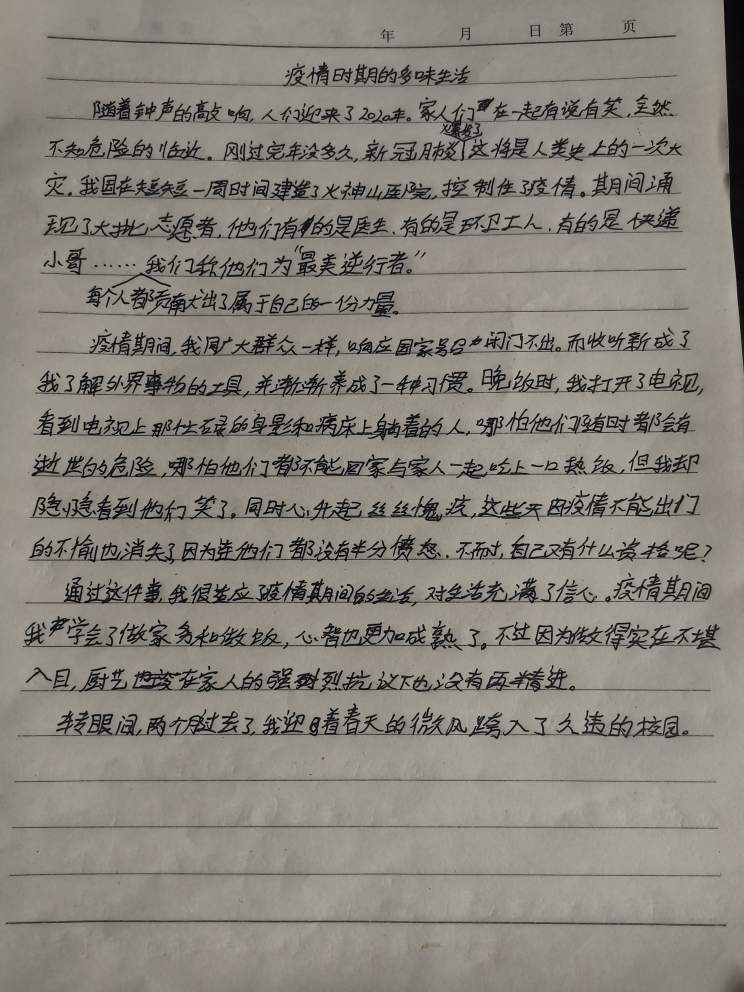 年 月 日 第 页
疫情时期的多味生活
随着钟声的敲响,人们迎来了2020年。家人们在一起有说有笑,全然
不知危险的临近。刚过完年没多久,新冠爆发了,这将是人类史上的一次大
灾。我国在短短一周时间建造了火神山医院,控制住了疫情。期间涌
现了大批志愿者,他们有的是医生,有的是环卫工人,有的是快递
小哥……我们称他们为“最美逆行者。”
每个人都贡献出了属于自己的一份力量。
疫情期间,我同广大群众一样,响应国家号召闭门不出。而收听新成了
我了解外界事物的工具,并渐渐养成了一种习惯。晚饭时,我打开了电视,
看到电视上那忙碌的身影和病床上躺着的人,哪怕他们随时都会有
逝世的危险,哪怕他们都不能回家与家人一起吃上一口热饭,但我却
隐隐看到他们笑了。同时心升起丝丝愧疚,这些天因疫情不能出们
的不愉也消失了,因为连他们都没有半分愤怒、不耐,自己又有什么资格呢?
通过这件事,我很适应了疫情其间的生活,对生活充满了信心。疫情其间
我学会了做家务和做饭,心智也更加成熟了。不过因为做得实在不堪
入目,厨艺也在家人的强烈抗议下也没有再精进。
转眼间,两个月过去了,我迎着春天的微风跨入了久违的校园。